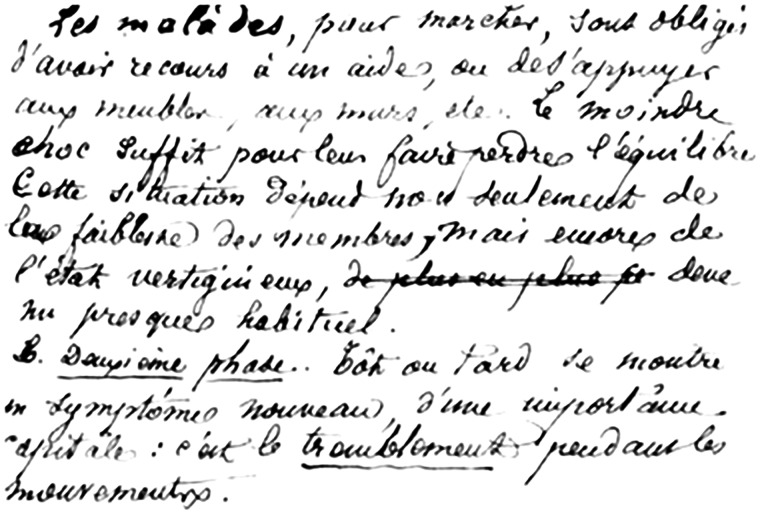 Les malades, pour marcher, sont obligés
d'avoir recours à un aide, ou de s'appuyer
aux meubles, aux murs, etc. Le moindre
choc suffit pour leur faire perdre l'équilibre
Cette situation dépend non seulement de
la faiblesse des membres, mais encore de
l'état vertigineux, de plus en plus deve
nu presque habituel.
B. Deuxième phase.. Tôt ou tard se montre
un symptôme nouveau, d'une importance
capitale : c'est le tremblement pendant les
mouvements.